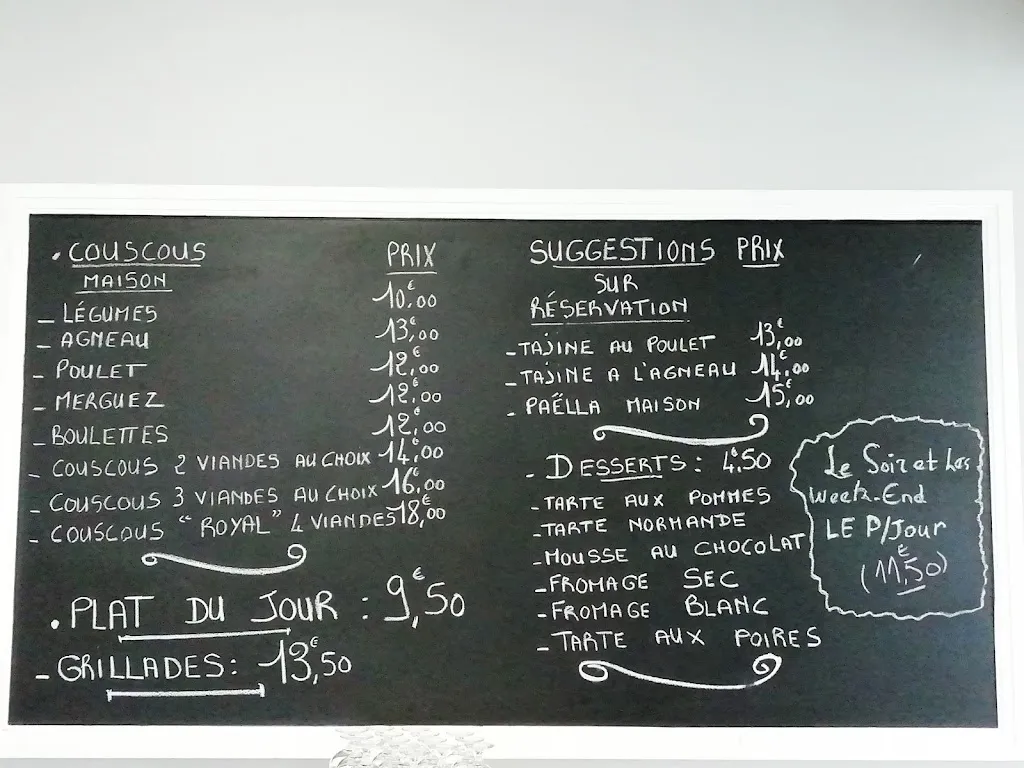 • COUSCOUS PRIX
MAISON
_ LÉGUMES 10,€00
_ AGNEAU 13,€00
_ POULET 12,€00
_ MERGUEZ 12,€00
_ BOULETTES 12,€00
_ COUSCOUS 2 VIANDES AU CHOIX 14,€00
_ COUSCOUS 3 VIANDES AU CHOIX 16,€00
_ COUSCOUS "ROYAL" 4 VIANDES 18,€00
• PLAT DU JOUR : 9,€50
_ GRILLADES : 13,€50
SUGGESTIONS PRIX
SUR
RÉSERVATION
_ TAJINE AU POULET 13,€00
_ TAJINE A L'AGNEAU 14,€00
_ PAËLLA MAISON 15,€00
_ DESSERTS : 4,€50
_ TARTE AUX POMMES
_ TARTE NORMANDE
_ MOUSSE AU CHOCOLAT
_ FROMAGE SEC
_ FROMAGE BLANC
_ TARTE AUX POIRES
Le Soir et Les
Week-End
LE P/Jour
(11,€50)